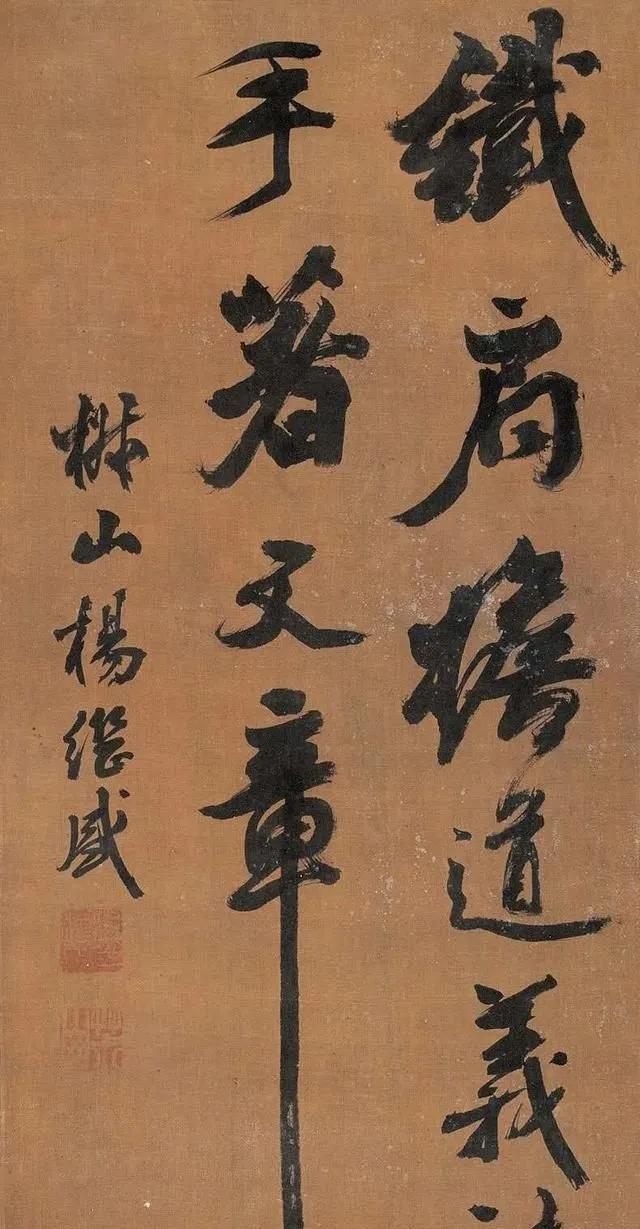 鐵肩擔道義
手著文章
椒山楊繼盛